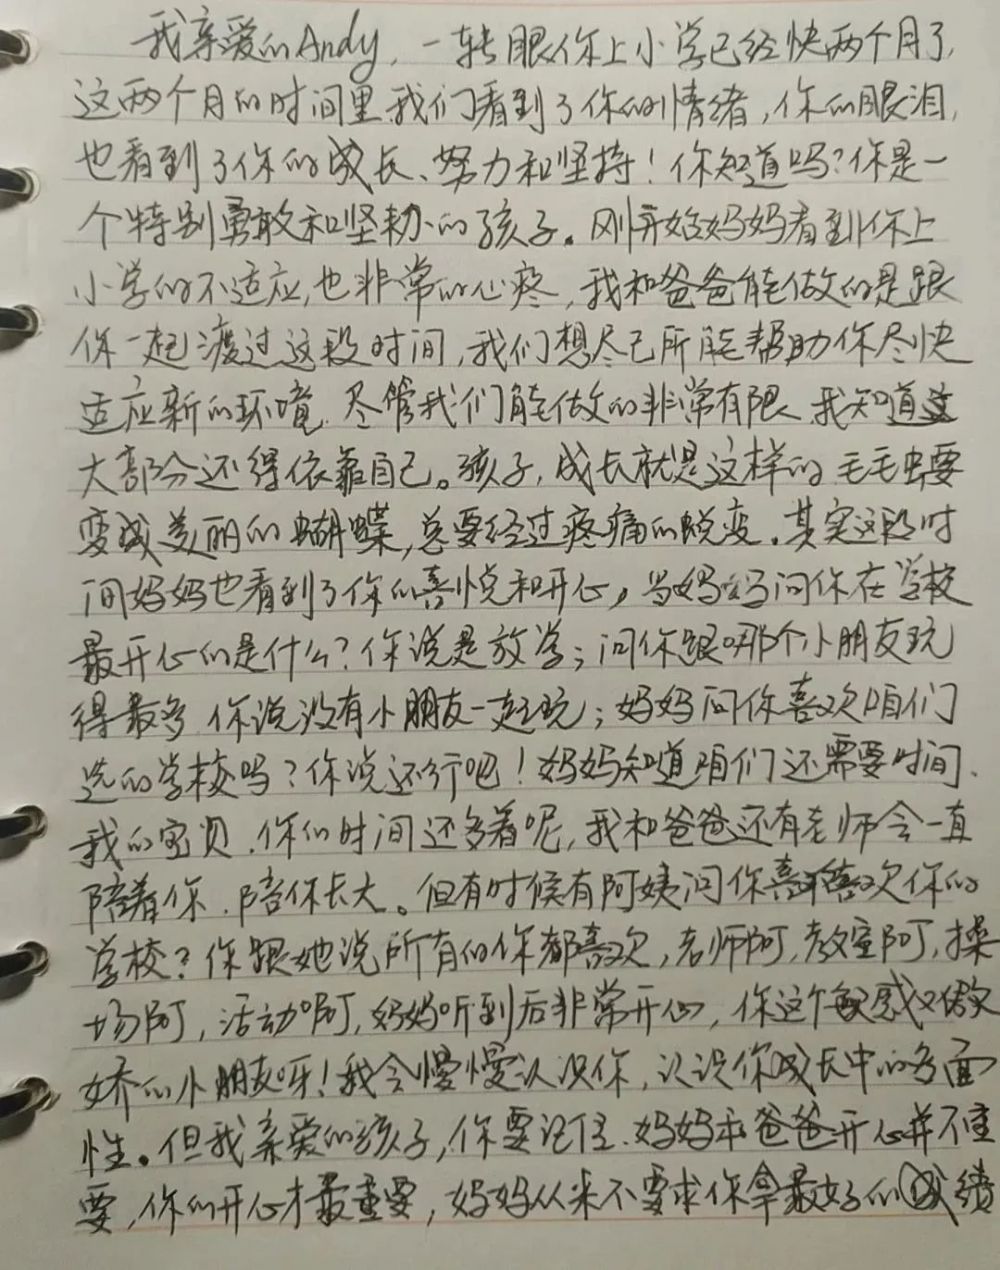 我亲爱的Andy,一转眼你上小学已经快两个月了,
这两个月的时间里我们看到了你的情绪,你的眼泪,
也看到了你的成长、努力和坚持!你知道吗?你是一
个特别勇敢和坚韧的孩子。刚开始妈妈看到你上
小学的不适应,也非常的心疼,我和爸爸能做的是跟
你一起渡过这段时间,我们想尽己所能帮助你尽快
适应新的环境.尽管我们能做的非常有限、我知道这
大部分还得依靠自己。孩子,成长就是这样的 毛毛虫要
变成美丽的蝴蝶,总要经过疼痛的蜕变.其实这段时
间妈妈也看到了你的喜悦和开心,当妈妈问你在学校
最开心的是什么?你说是放学;问你跟哪个小朋友玩
得最多 你说没有小朋友一起玩;妈妈问你喜欢咱们
选的学校吗?你说还行吧!妈妈知道咱们还需要时间.
我的宝贝.你的时间还多着呢,我和爸爸还有老师会一直
陪着你.陪你长大。但有时候有阿姨问你喜不喜欢你的
学校?你跟她说所有的你都喜欢,老师啊,教室啊,操
场啊,活动啊,妈妈听到后非常开心,你这个敏感又傲
娇的小朋友呀!我会慢慢认识你,认识你成长中的多面
性。但我亲爱的孩子,你要记住.妈妈和爸爸开心并不重
要,你的开心才最重要,妈妈从来不要求你拿最好的成绩